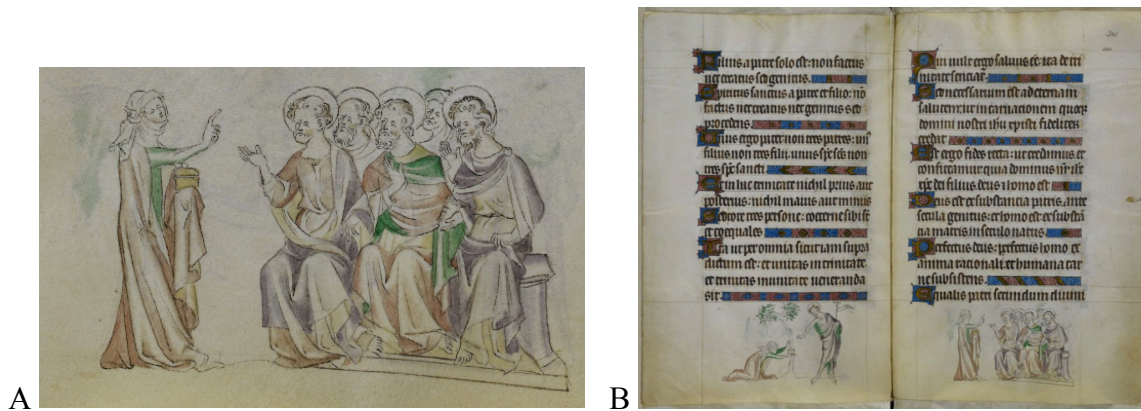 A
B
Filius a patre solo est: non factus
nec creatus sed genitus.
Spiritus sanctus a patre et filio: nō
factus nec creatus nec genitus sed
procedens.
Unus ergo pater non tres patres: un
filius non tres filii: unus sps̄ scs̄ non
tres sps̄ sancti.
Et in hac trinitate nichil prius aut
posterius: nichil maius aut minus
Sed tote tres persone: coeterne sibi st
et coequales
Ita ut per omnia sicut iam supra
dictum est: et unitas in trinitate
et trinitas in unitate ueneranda
sit.
Qui uult ergo saluus eē: ita de tri
nitate senciat.
Sed necessarium est ad eternam
salutem: ut incarnacionem quoqȝ
domini nostri ihū xpisti fideliter
credat
Est ergo fides recta: ut credimus et
confiteamur quia dominus nr̄ ihc̄
xpc̄ dei filius deus et homo est
Deus est ex substancia patris, ante
secula genitus: et homo est ex substā
cia matris in seculo natus.
Perfectus deus: perfectus homo ex
anima racionali et humana car
ne subsistens.
Equalis patri secundum diuini